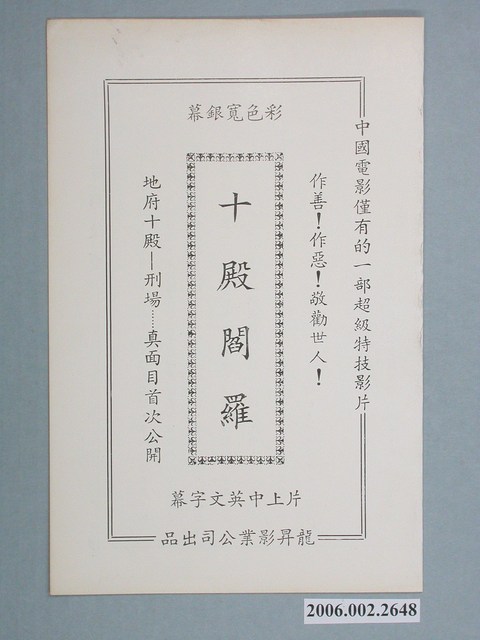 中國電影僅有的一部超級特技影片
彩色寬銀幕
作善！作惡！敬勸世人！
十殿閻羅
地府十殿—刑場……真面目首次公開
片上中英文字幕
龍昇影業公司出品
2006.002.2648